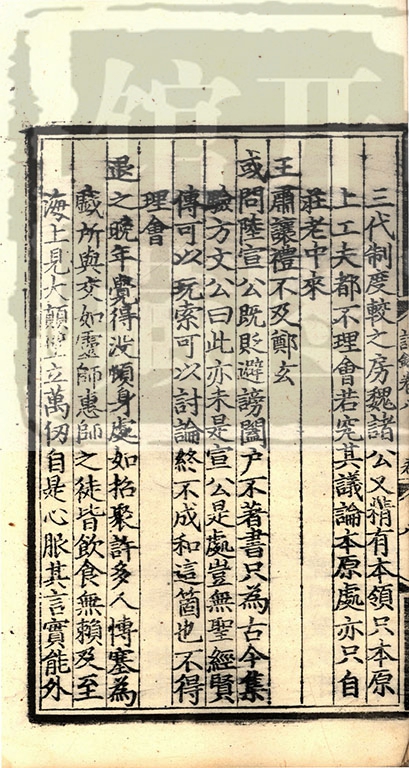 三代制度較之房魏諸公又稍有本領只本原
上工夫都不理會若究其議論本原處亦只自
莊老中來
王肅議禮不及鄭玄
或問陸宣公既貶避謗闔户不著書只為古今集
驗方文公曰此亦未是宣公是處豈無聖經賢
傳可以玩索可以討論終不成和這箇也不得
理會
退之晚年覺得没頓身處如招聚許多人博塞為
戲所與交如靈師惠師之徒皆飲食無賴及至
海上見大顛壁立萬仞自是心服其言實能外